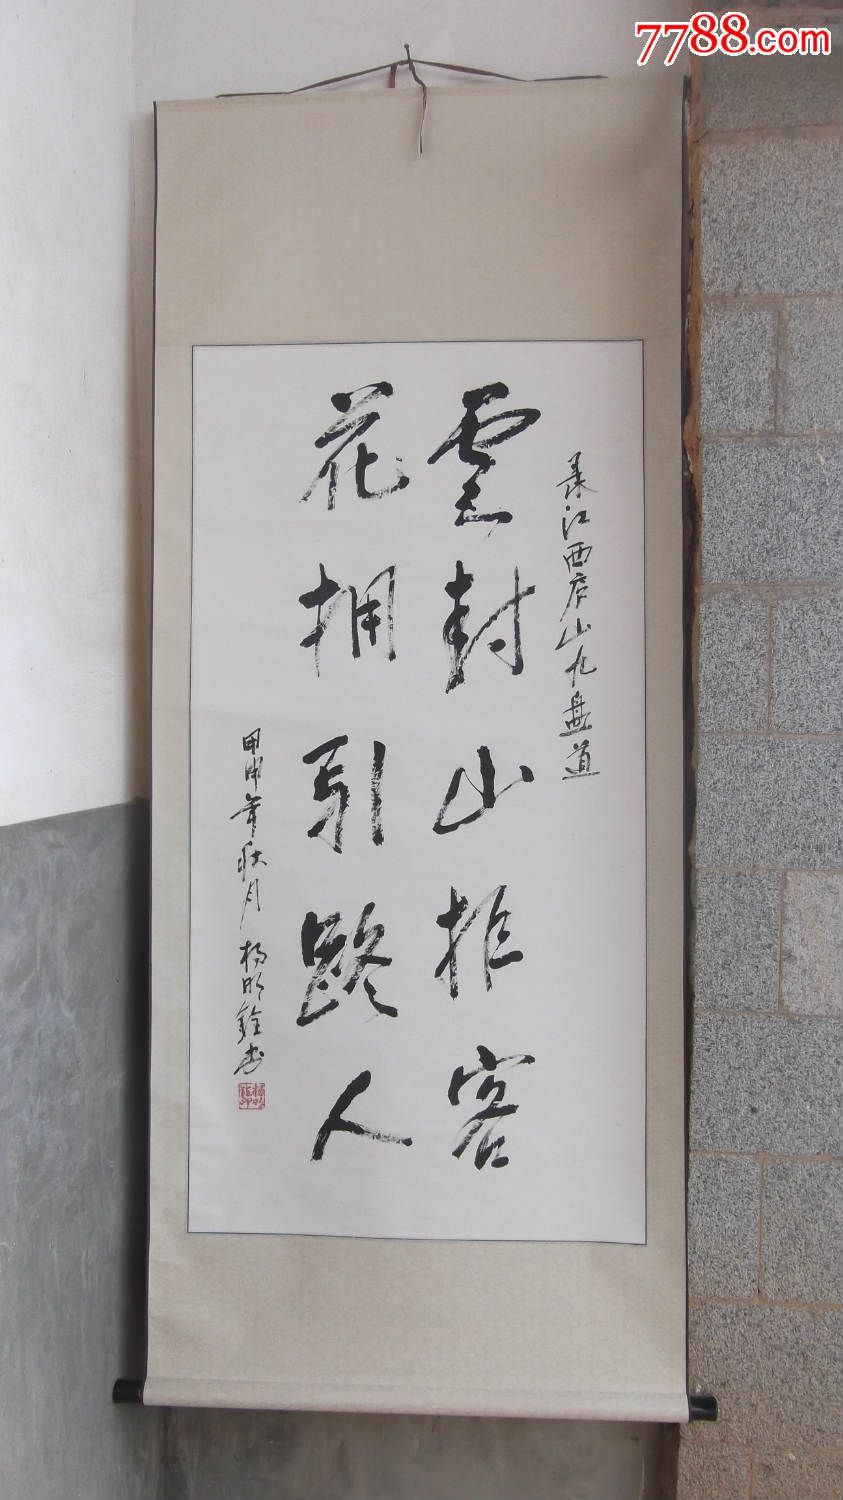 7788.com
录江西庐山九盘道
雲封山拒客
花拥引路人
甲申年秋月 杨明铨书